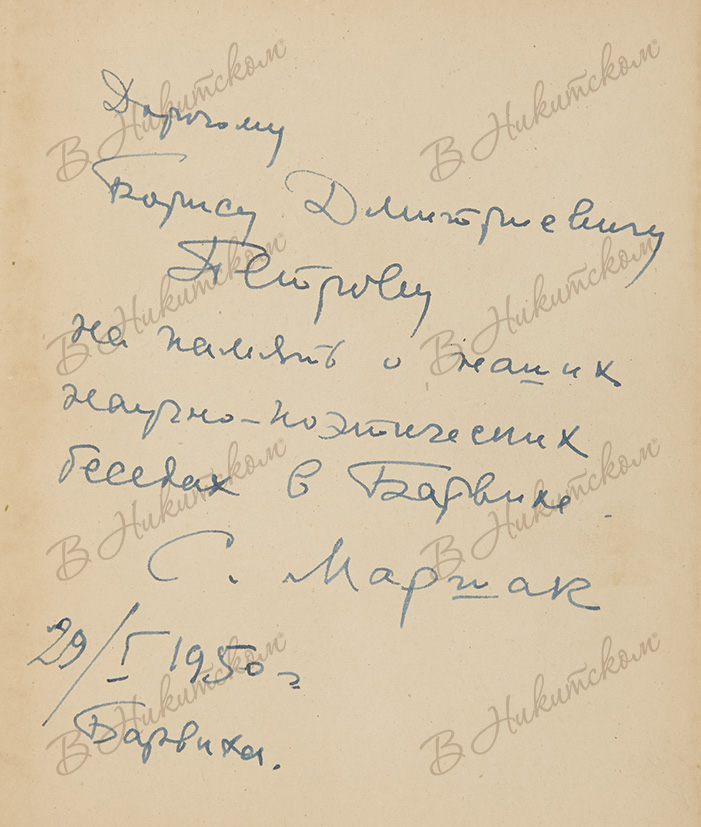 Дорогому
Борису Дмитриевичу
Петрову
на память о наших
научно-поэтических
беседах в Барвихе.
С. Маршак
29/I 1950 г
Барвиха.
В Никитском
В Никитском
В Никитском
В Никитском
В Никитском
В Никитском
В Никитском
В Никитском